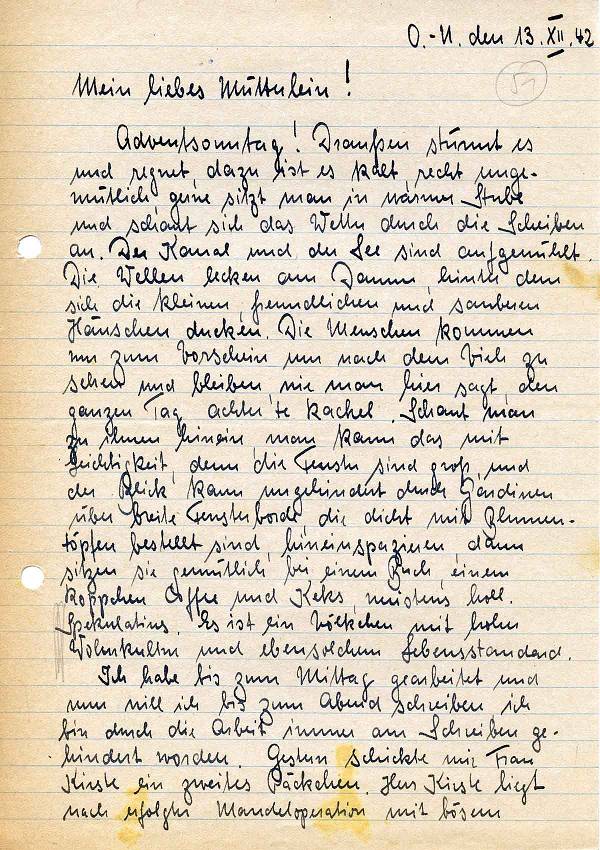 O.-N. den 13. XII. 42
51
Mein liebes Mütterlein!
Adventsonntag! Draußen stürmt es
und regnet, dazu ist es kalt, recht unge-
mütlich, gerne sitzt man in warmer Stube
und schaut sich das Wetter durch die Scheiben
an. Der Kanal und der See sind aufgewühlt.
Die Wellen lecken am Damm, hinter dem
sich die kleinen, freundlichen und sauberen
Häuschen ducken. Die Menschen kommen
nur zum Vorschein um nach dem Vieh zu
sehen und bleiben wie man hier sagt, den
ganzen Tag achter 'te kachel. Schaut man
zu ihnen hinein, man kann das mit
Leichtigkeit, denn die Fenster sind groß und
der Blick kann ungehindert durch Gardinen
über breite Fensterborde, die dicht mit Blumen-
töpfen bestellt sind, hineinspazieren, dann
sitzen sie gemütlich bei einem Buch, einem
Koppchen Coffee und Keks, meistens holl.
Spekulatius. Es ist ein Völkchen mit hoher
Wohnkultur und ebensolchem Lebensstandard.
Ich habe bis zum Mittag gearbeitet und
nun will ich bis zum Abend schreiben, ich
bin durch die Arbeit immer am Schreiben ge-
hindert worden. Gestern schickte mir Frau
Kirste ein zweites Päckchen. Herr Kirste liegt
nach erfolgter Mandeloperation mit bösem